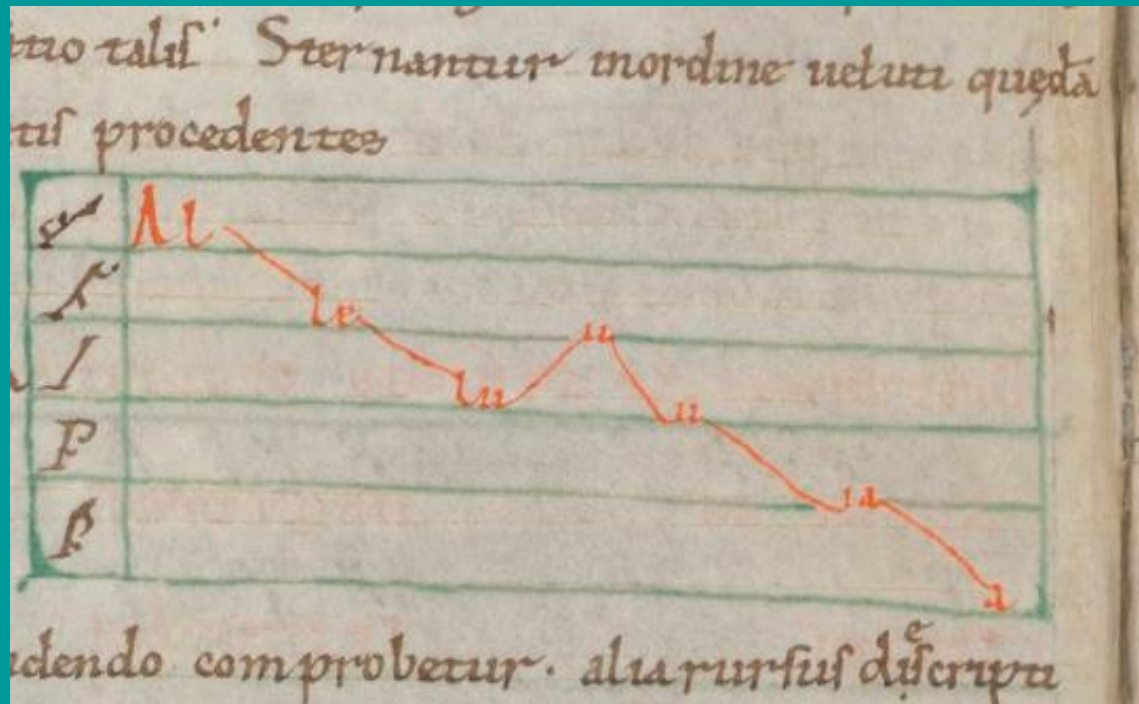 tio talis. Sternantur in ordine ueluti quędā
tis procedentes
Al
le
lu
u
u
ia
a
I
F
dendo comprobetur. alia rursus discripti